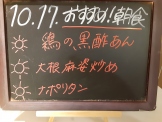 10.17. おすすめ!朝食
鶏の黒酢あん
大根麻婆炒め
ナポリタン